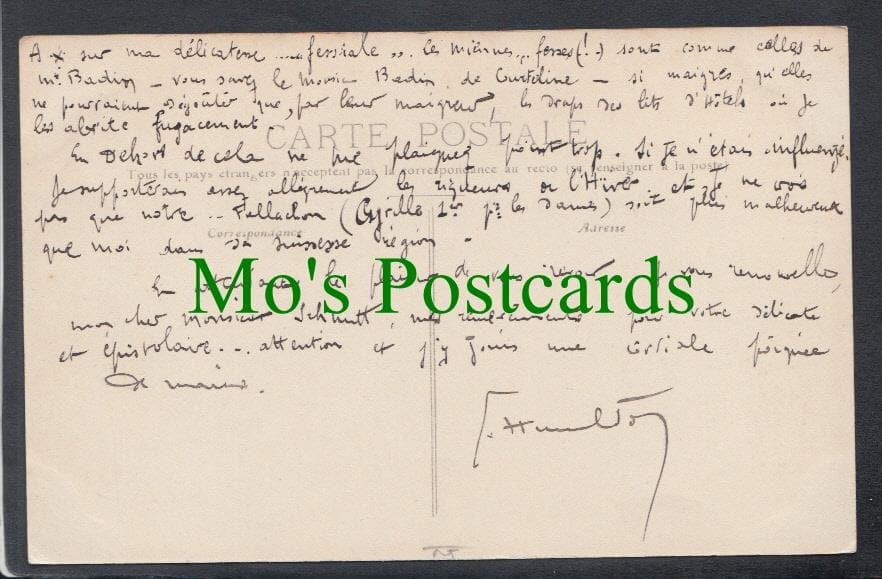 A X sur ma délicatesse .... fessiale .. les miennes .. fesses (!..) sont comme celles de
Mr Badin – vous savez le Monsieur Badin de Courteline – si maigres, qu'elles
ne pourraient dégoûter que, par leur maigreur, les draps des lits d'Hôtels où je
les abrite fugacement.
CARTE POSTALE
En Dehors de cela ne me plaignez point trop. Si je n'étais influenzé,
Tous les pays étrangers n'acceptent pas la correspondance au recto (se renseigner à la poste)
Je supporterais assez allégrement les rigueurs de l'Hiver et je ne vois
pas que notre .. (Cyrille 1er pr les Dames) soit plus malheureux
Correspondance
Adresse
que moi dans sa région –
En le plaisir de vous je vous renouvelle,
Mo's Postcards
mon cher Monsieur Schmitt, mes remerciements pour votre délicate
et épistolaire ... attention et j'y joins une cordiale poignée
de mains.